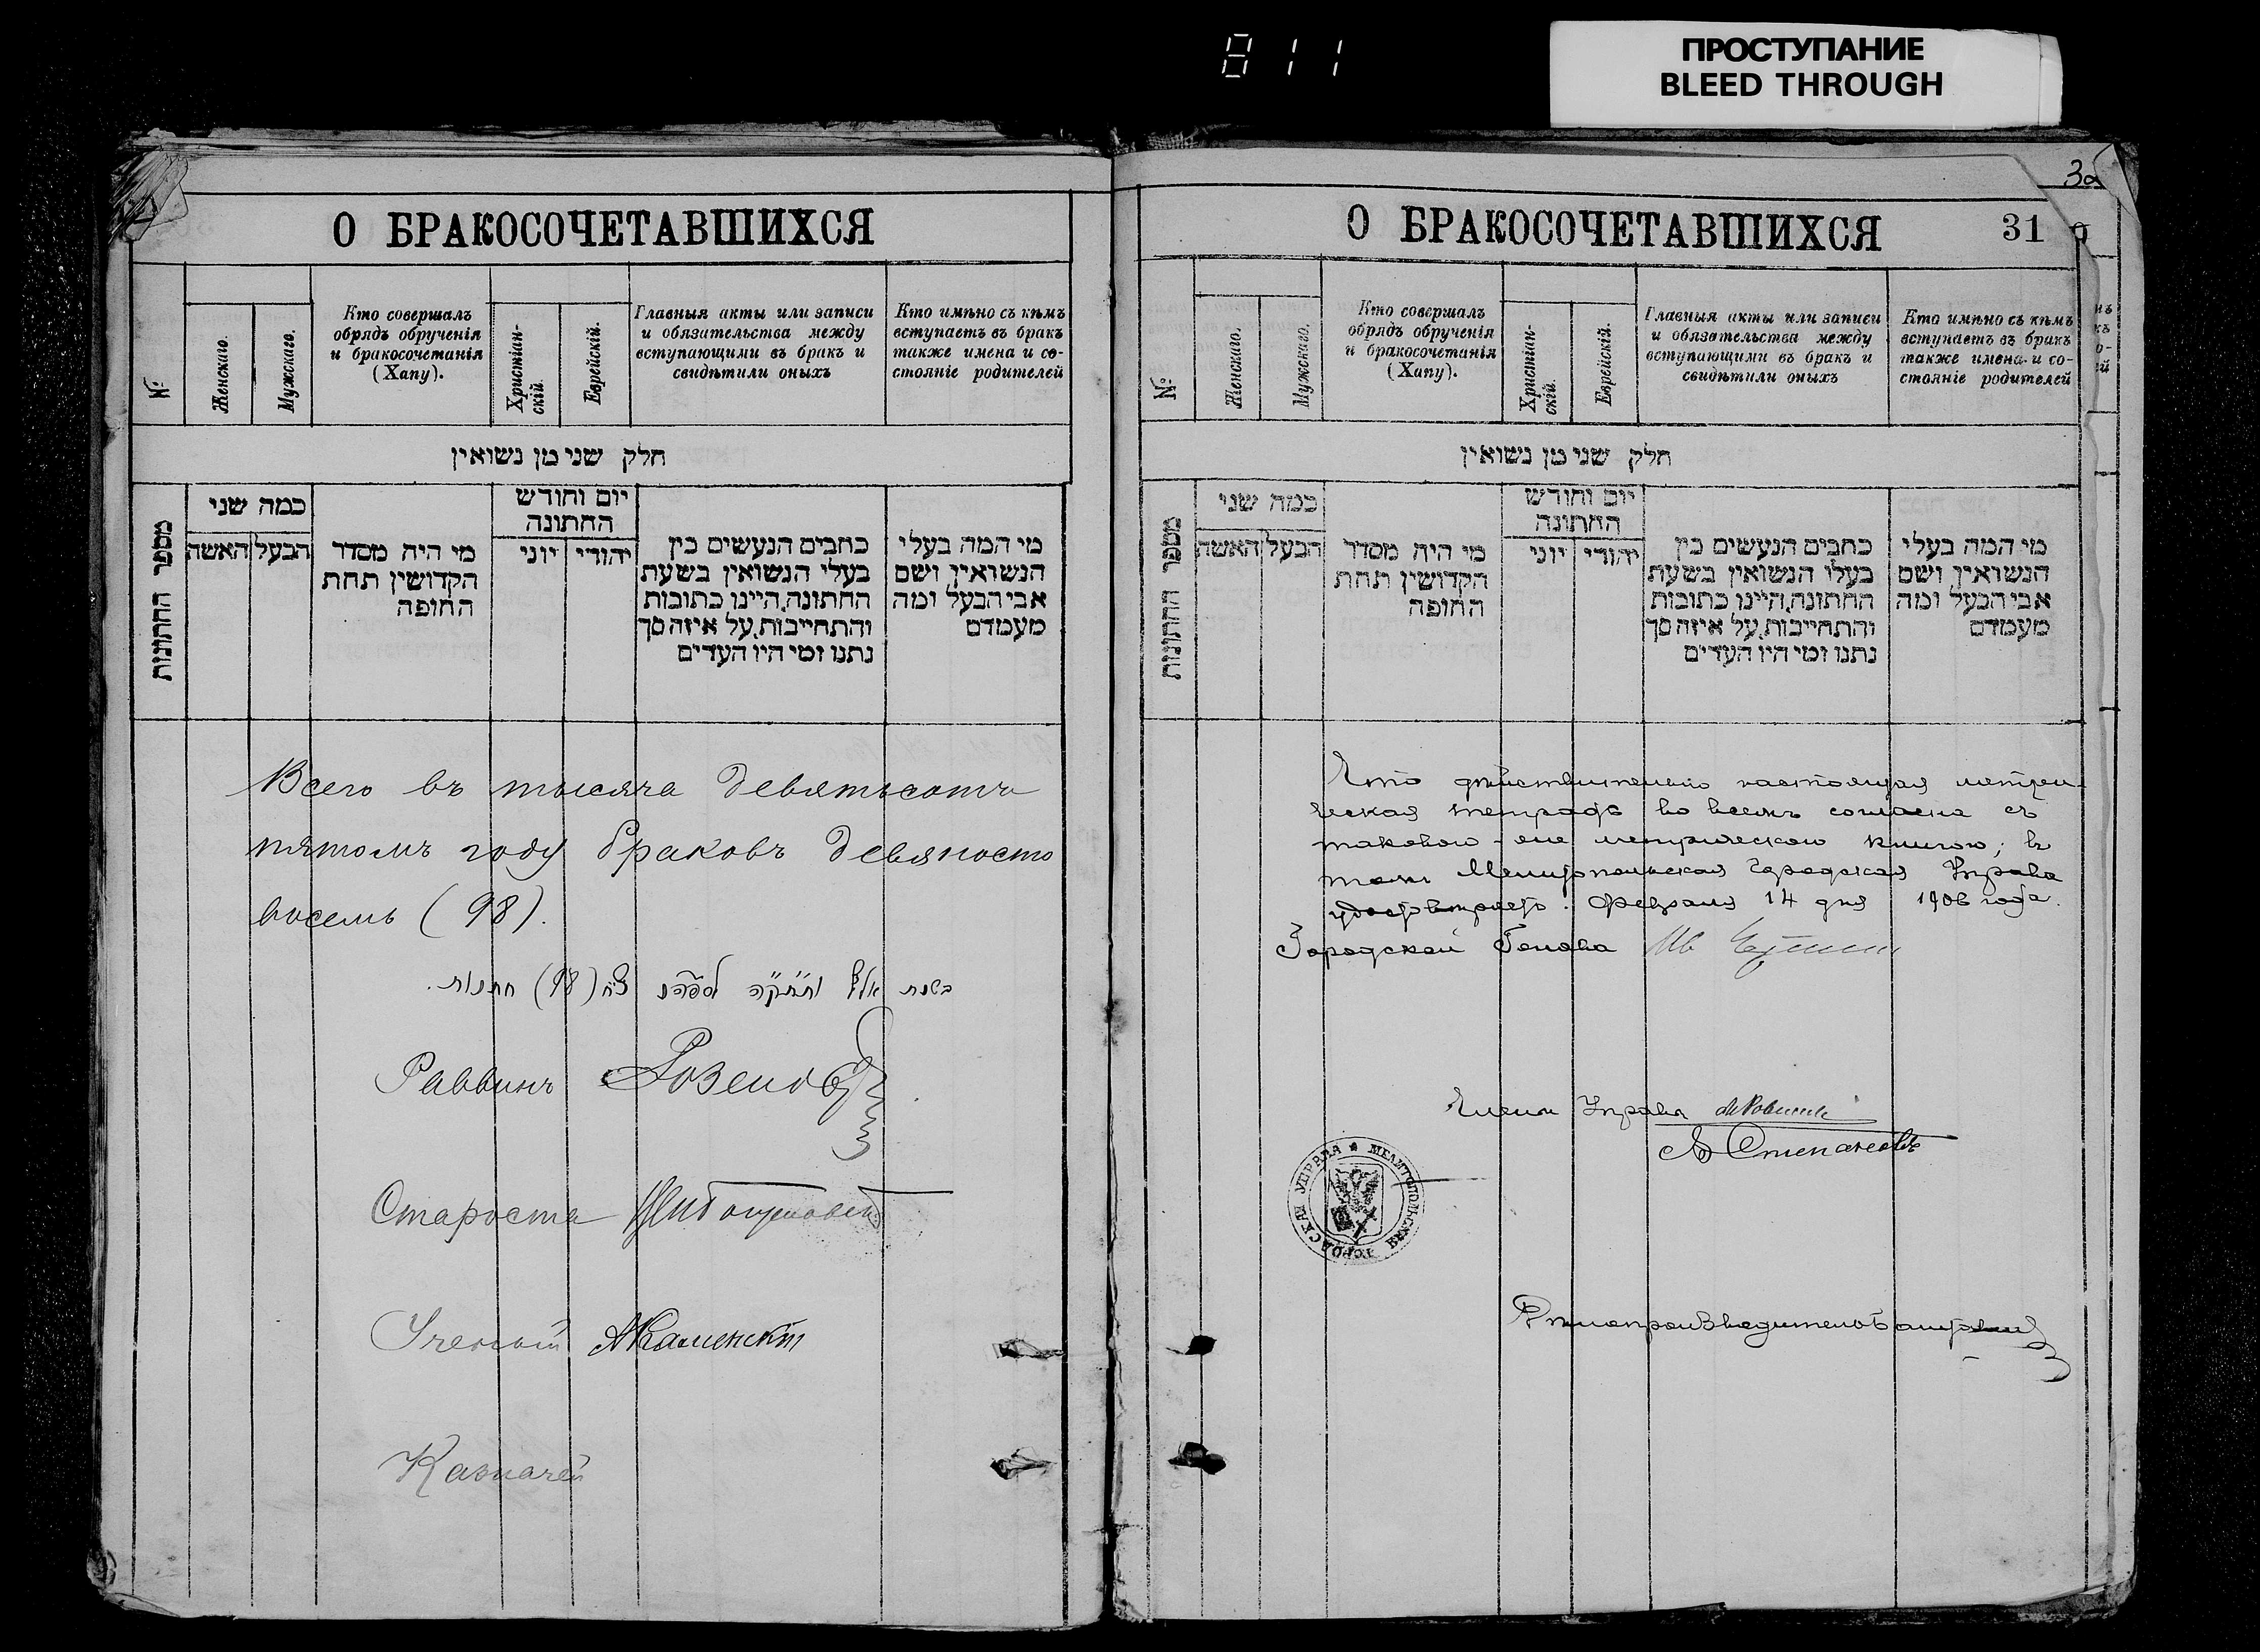 811
ПРОСТУПАНИЕ
BLEED THROUGH
О БРАКОСОЧЕТАВШИХСЯ
№
Женскаго.
Мужскаго.
Кто совершалъ
обрядъ обрученія
и бракосочетанія
(Хапу).
Христіан-
скій.
Еврейскій.
Главныя акты или записи
и обязательства между
вступающими въ бракъ и
свидѣтили оныхъ
Кто имѣно съ кѣмъ
вступаетъ въ бракъ
также имена и со-
стояніе родителей
חלק שני מן נשואין
מספר החתונות
כמה שני
האשה
הבעל
מי היה מסדר
הקדושין תחת
החופה
יום וחודש
החתונה
יוני
יהודי
כתבים הנעשים בין
בעלי הנשואין בשעת
החתונה, היינו כתובות
והתחייבות, על איזה סך
נתנו ומי היו העדים
מי המה בעלי
הנשואין ושם
אבי הבעל ומה
מעמדם
Всего въ тысяча девятьсотъ
пятомъ году браковъ девяносто
восемь (98).
בשנת אלף (98) חתונות.
Раввинъ
Староста
Ученый АКаменскій
Казначей
3
О БРАКОСОЧЕТАВШИХСЯ
31
№
Женскаго.
Мужскаго.
Кто совершалъ
обрядъ обрученія
и бракосочетанія
(Хапу).
Христіан-
скій.
Еврейскій.
Главныя акты или записи
и обязательства между
вступающими въ бракъ и
свидѣтили оныхъ
Кто имѣно съ кѣмъ
вступаетъ въ бракъ
также имена и со-
стояніе родителей
חלק שני מן נשואין
מספר החתונות
כמה שני
האשה
הבעל
מי היה מסדר
הקדושין תחת
החופה
יום וחודש
החתונה
יוני
יהודי
כתבים הנעשים בין
בעלי הנשואין בשעת
החתונה, היינו כתובות
והתחייבות, על איזה סך
נתנו ומי היו העדים
מי המה בעלי
הנשואין ושם
אבי הבעל ומה
מעמדם
Что дѣйствительно настоящая метри-
ческая тетрадь во всемъ согласна съ
таковою-же метрическою книгою, въ
томъ Мелитопольская Городская Управа
удостовѣряетъ. Февраля 14 дня 1906 года.
Городской Голова
Члены Управы
А Степановъ
МЕЛИТОПОЛЬСКАЯ ГОРОДСКАЯ УПРАВА
Дѣлопроизводитель